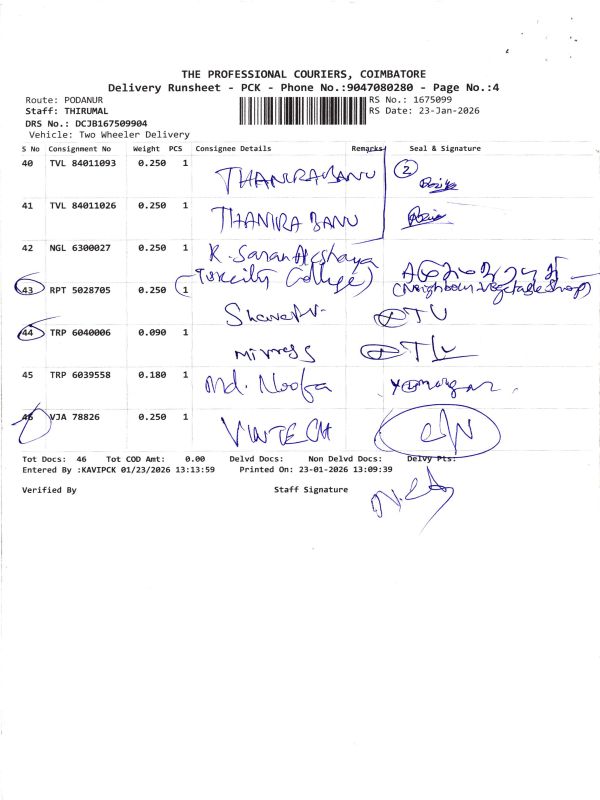 THE PROFESSIONAL COURIERS, COIMBATORE
Delivery Runsheet - PCK - Phone No.:9047080280 - Page No.:4
Route: PODANUR
RS No.: 1675099
Staff: THIRUMAL
RS Date: 23-Jan-2026
DRS No.: DCJB167509904
Vehicle: Two Wheeler Delivery
S No Consignment No Weight PCS Consignee Details Remarks Seal & Signature
40 TVL 84011093 0.250 1 THANIRABANU 2
41 TVL 84011026 0.250 1 THANIRA BANU
42 NGL 6300027 0.250 1 K. Saran Akshaya
43 RPT 5028705 0.250 1 College) (Neighbour Vegetable shop)
44 TRP 6040006 0.090 1
45 TRP 6039558 0.180 1 Md.
46 VJA 78826 0.250 1 VINTECH
Tot Docs: 46 Tot COD Amt: 0.00 Delvd Docs: Non Delvd Docs: Delvy Pts:
Entered By :KAVIPCK 01/23/2026 13:13:59 Printed On: 23-01-2026 13:09:39
Verified By Staff Signature